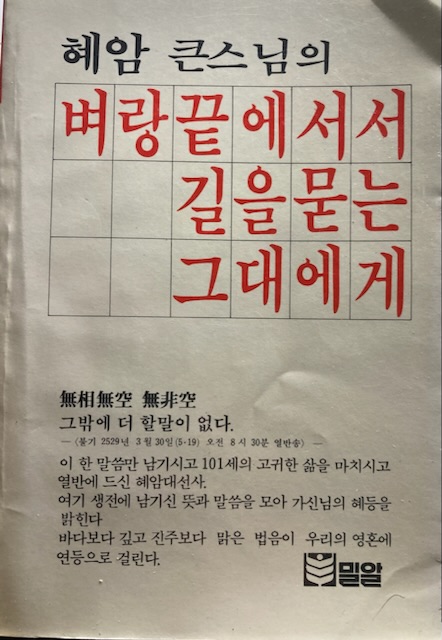 혜암 큰스님의
벼랑끝에서서
길을묻는
그대에게
無相無空 無非空
그밖에 더 할말이 없다.
— 〈불기 2529년 3월 30일(5·19) 오전 8시 30분 열반송〉 —
이 한 말씀만 남기시고 101세의 고귀한 삶을 마치시고
열반에 드신 혜암대선사.
여기 생전에 남기신 뜻과 말씀을 모아 가신님의 혜등을
밝힌다
바다보다 깊고 진주보다 맑은 법음이 우리의 영혼에
연등으로 걸린다.
밀알